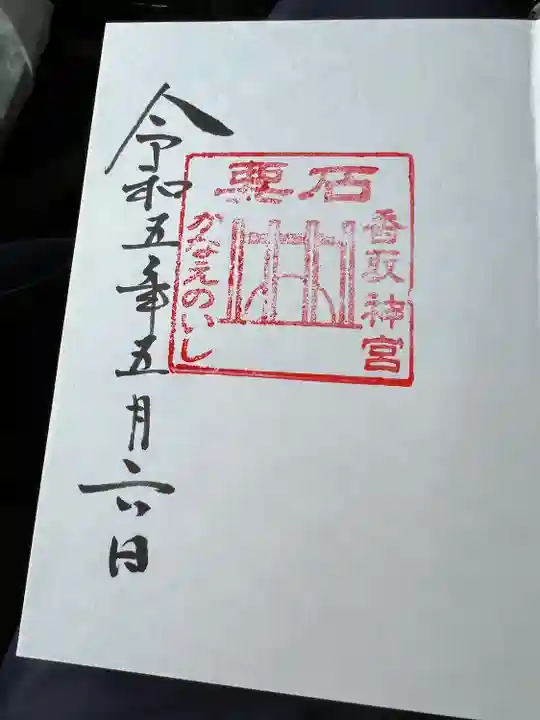 要石
香取神宮
かなえのいし
令和五年五月六日